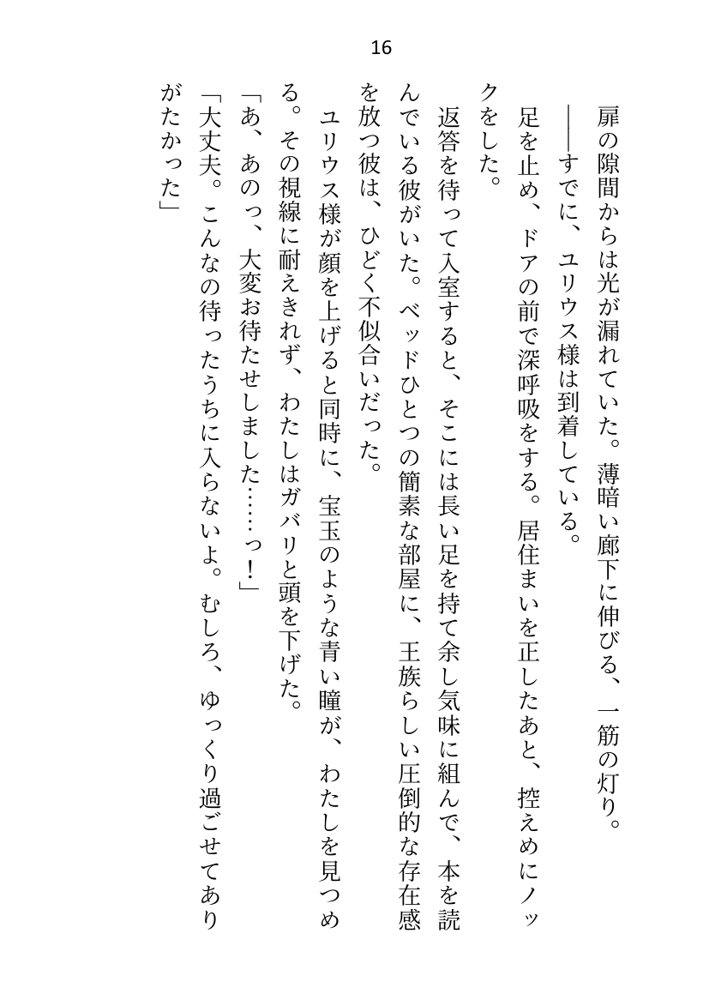 16
　扉の隙間からは光が漏れていた。薄暗い廊下に伸びる、一筋の灯り。
　――すでに、ユリウス様は到着している。
　足を止め、ドアの前で深呼吸をする。居住まいを正したあと、控えめにノッ
クをした。
　返答を待って入室すると、そこには長い足を持て余し気味に組んで、本を読
んでいる彼がいた。ベッドひとつの簡素な部屋に、王族らしい圧倒的な存在感
を放つ彼は、ひどく不似合いだった。
　ユリウス様が顔を上げると同時に、宝玉のような青い瞳が、わたしを見つめ
る。その視線に耐えきれず、わたしはガバリと頭を下げた。
「あ、あのっ、大変お待たせしました……っ！」
「大丈夫。こんなの待ったうちに入らないよ。むしろ、ゆっくり過ごせてあり
がたかった」